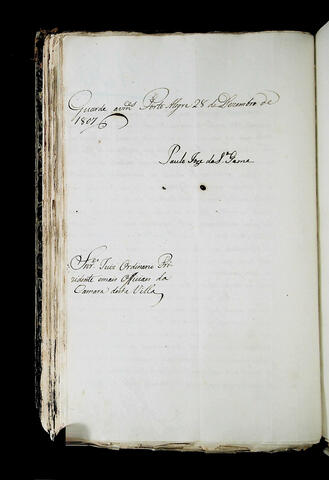 Guarde a vmces Porto Alegre 28 de Dezembro de
1807
Paulo Joze da Sa Gama
Snr.es Juiz Ordinario Pre-
zidente emais Officiaes da
Camara desta Villa